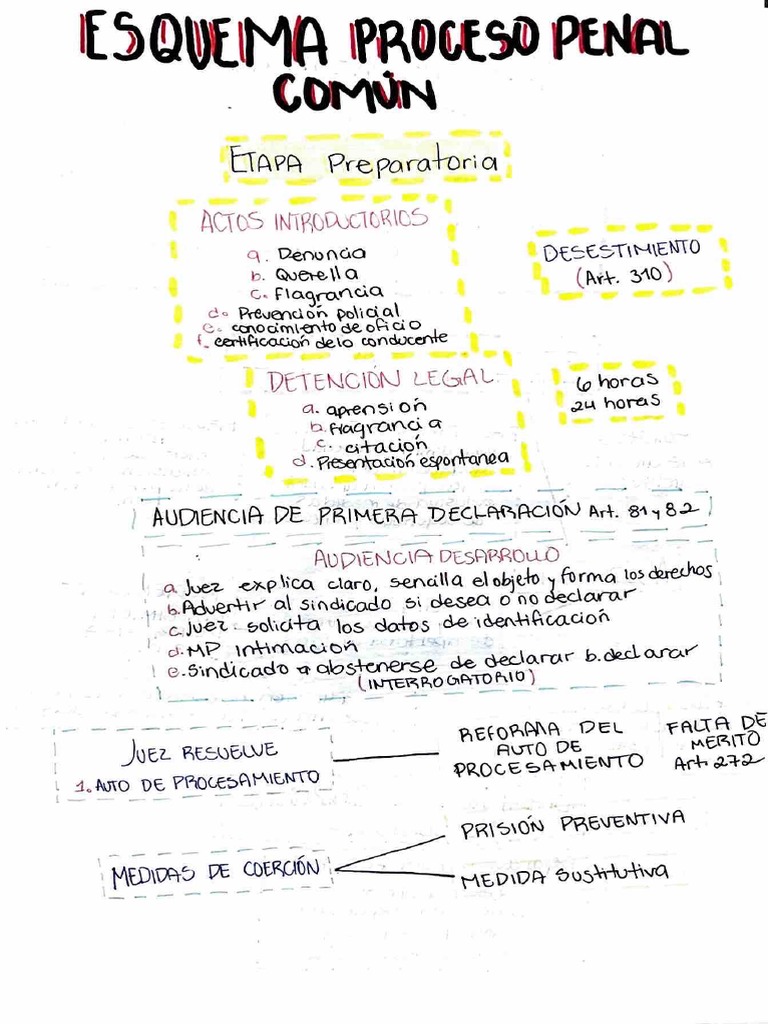 ESQUEMA PROCESO PENAL
COMÚN
ETAPA Preparatoria
ACTOS INTRODUCTORIOS
a. Denuncia
b. Querella
c. Flagrancia
d. Prevención policial
e. conocimiento de oficio
f. certificación de lo conducente
DESESTIMIENTO
(Art. 310)
DETENCIÓN LEGAL
a. aprensión
b. flagrancia
c. citación
d. Presentación espontanea
6 horas
24 horas
AUDIENCIA DE PRIMERA DECLARACIÓN Art. 81 y 82
AUDIENCIA DESARROLLO
a. Juez explica claro, sencilla el objeto y forma los derechos
b. Advertir al sindicado si desea o no declarar
c. Juez solicita los datos de identificación
d. MP intimación
e. Sindicado a abstenerse de declarar b. declarar
(INTERROGATORIO)
JUEZ RESUELVE
1. AUTO DE PROCESAMIENTO
REFORMA DEL
AUTO DE
PROCESAMIENTO
FALTA DE
MERITO
Art. 272
MEDIDAS DE COERCIÓN
PRISIÓN PREVENTIVA
MEDIDA SUSTITUTIVA